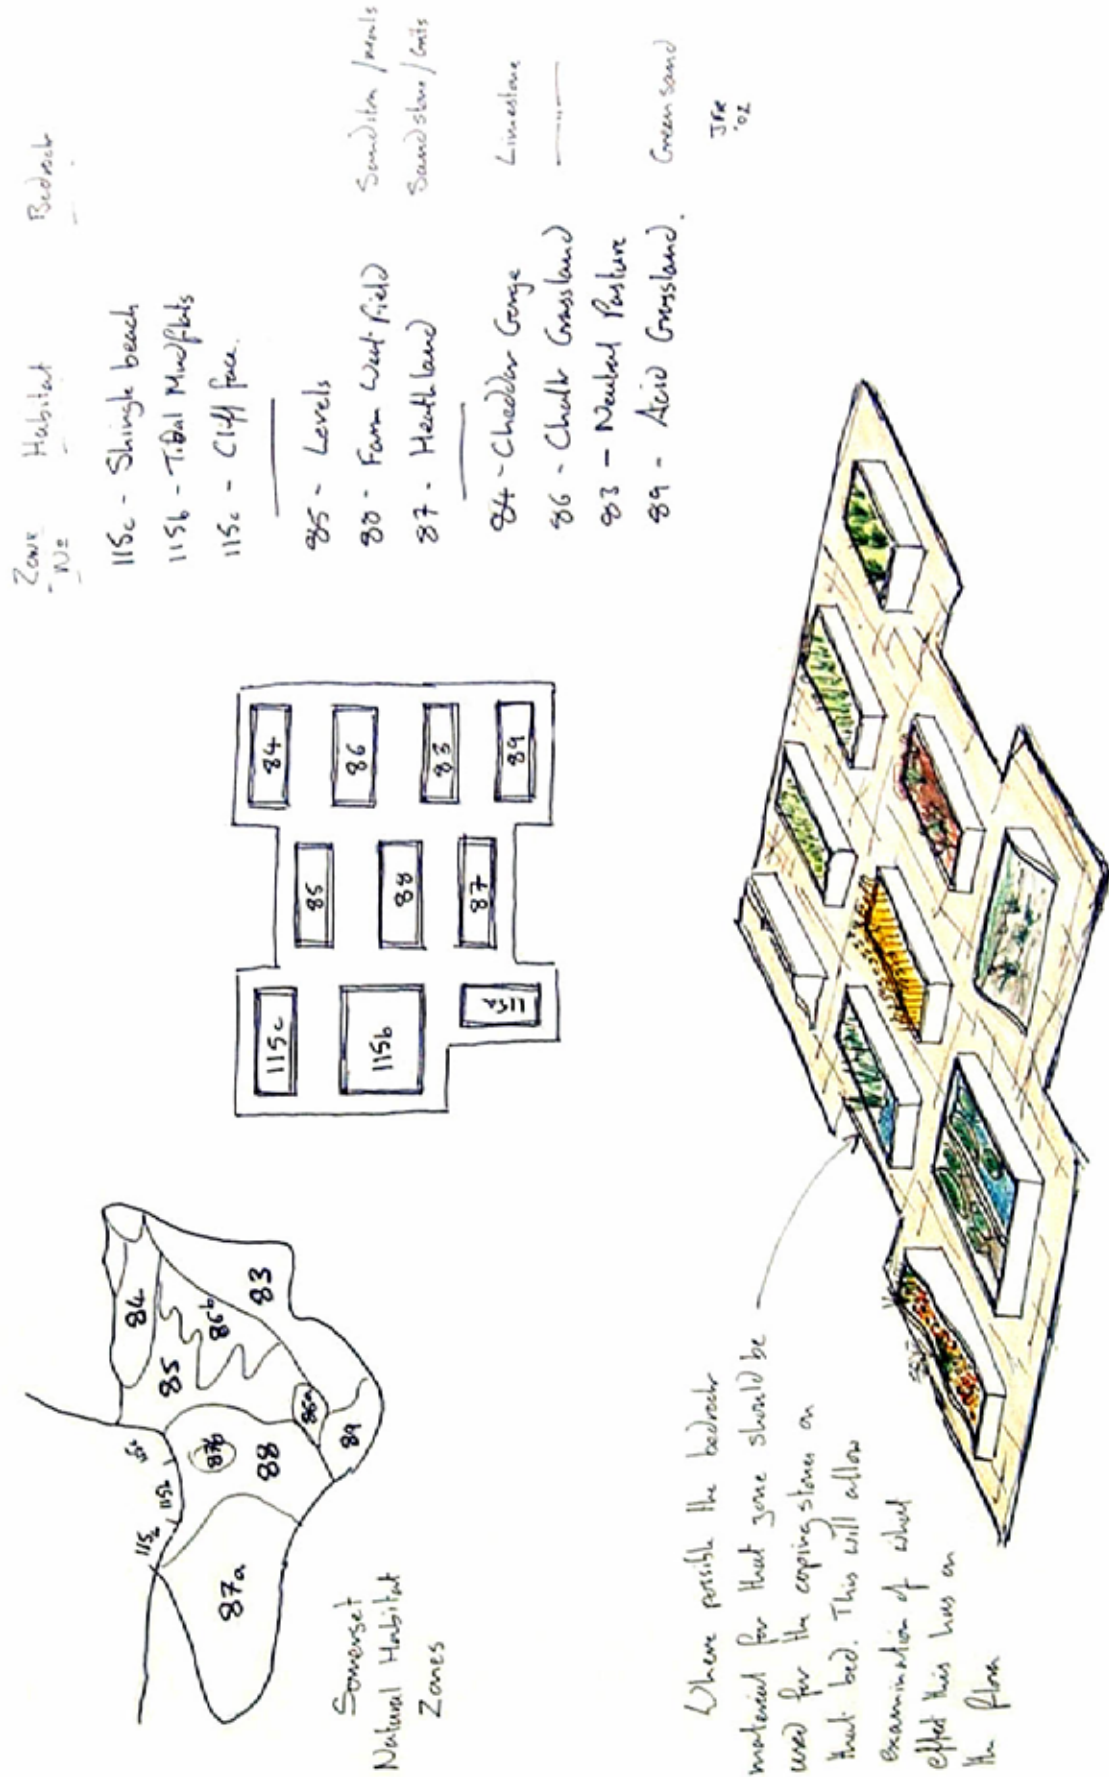 Somerset
Natural Habitat
Zones
115b
115c
87a
87b
88
85
84
85b
86a
89
83
115c
115b
115a
85
88
87
84
86
83
89
Zone Habitat Bedrock
No
115c - Shingle beach
115b - Tidal Mudflats
115c - Cliff face.
85 - Levels
88 - Farm West Field Sandstn / marls
87 - Heathland Sandstone / Grits
84 - Cheddar Gorge Limestone
86 - Chalk Grassland — " —
83 - Neutral Pasture
89 - Acid Grassland. Greensand
JFR
'02
Where possible the bedrock
material for that zone should be
used for the coping stones on
that bed. This will allow
examination of what
effect this has on
the flora